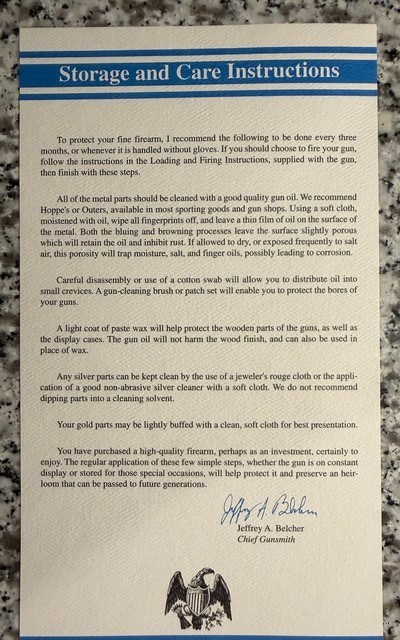 Storage and Care Instructions
To protect your fine firearm, I recommend the following to be done every three
months, or whenever it is handled without gloves. If you should choose to fire your gun,
follow the instructions in the Loading and Firing Instructions, supplied with the gun,
then finish with these steps.
All of the metal parts should be cleaned with a good quality gun oil. We recommend
Hoppe's or Outers, available in most sporting goods and gun shops. Using a soft cloth,
moistened with oil, wipe all fingerprints off, and leave a thin film of oil on the surface of
the metal. Both the bluing and browning processes leave the surface slightly porous
which will retain the oil and inhibit rust. If allowed to dry, or exposed frequently to salt
air, this porosity will trap moisture, salt, and finger oils, possibly leading to corrosion.
Careful disassembly or use of a cotton swab will allow you to distribute oil into
small crevices. A gun-cleaning brush or patch set will enable you to protect the bores of
your guns.
A light coat of paste wax will help protect the wooden parts of the guns, as well as
the display cases. The gun oil will not harm the wood finish, and can also be used in
place of wax.
Any silver parts can be kept clean by the use of a jeweler's rouge cloth or the appli-
cation of a good non-abrasive silver cleaner with a soft cloth. We do not recommend
dipping parts into a cleaning solvent.
Your gold parts may be lightly buffed with a clean, soft cloth for best presentation.
You have purchased a high-quality firearm, perhaps as an investment, certainly to
enjoy. The regular application of these few simple steps, whether the gun is on constant
display or stored for those special occasions, will help protect it and preserve an heir-
loom that can be passed to future generations.
Jeffrey A. Belcher
Jeffrey A. Belcher
Chief Gunsmith